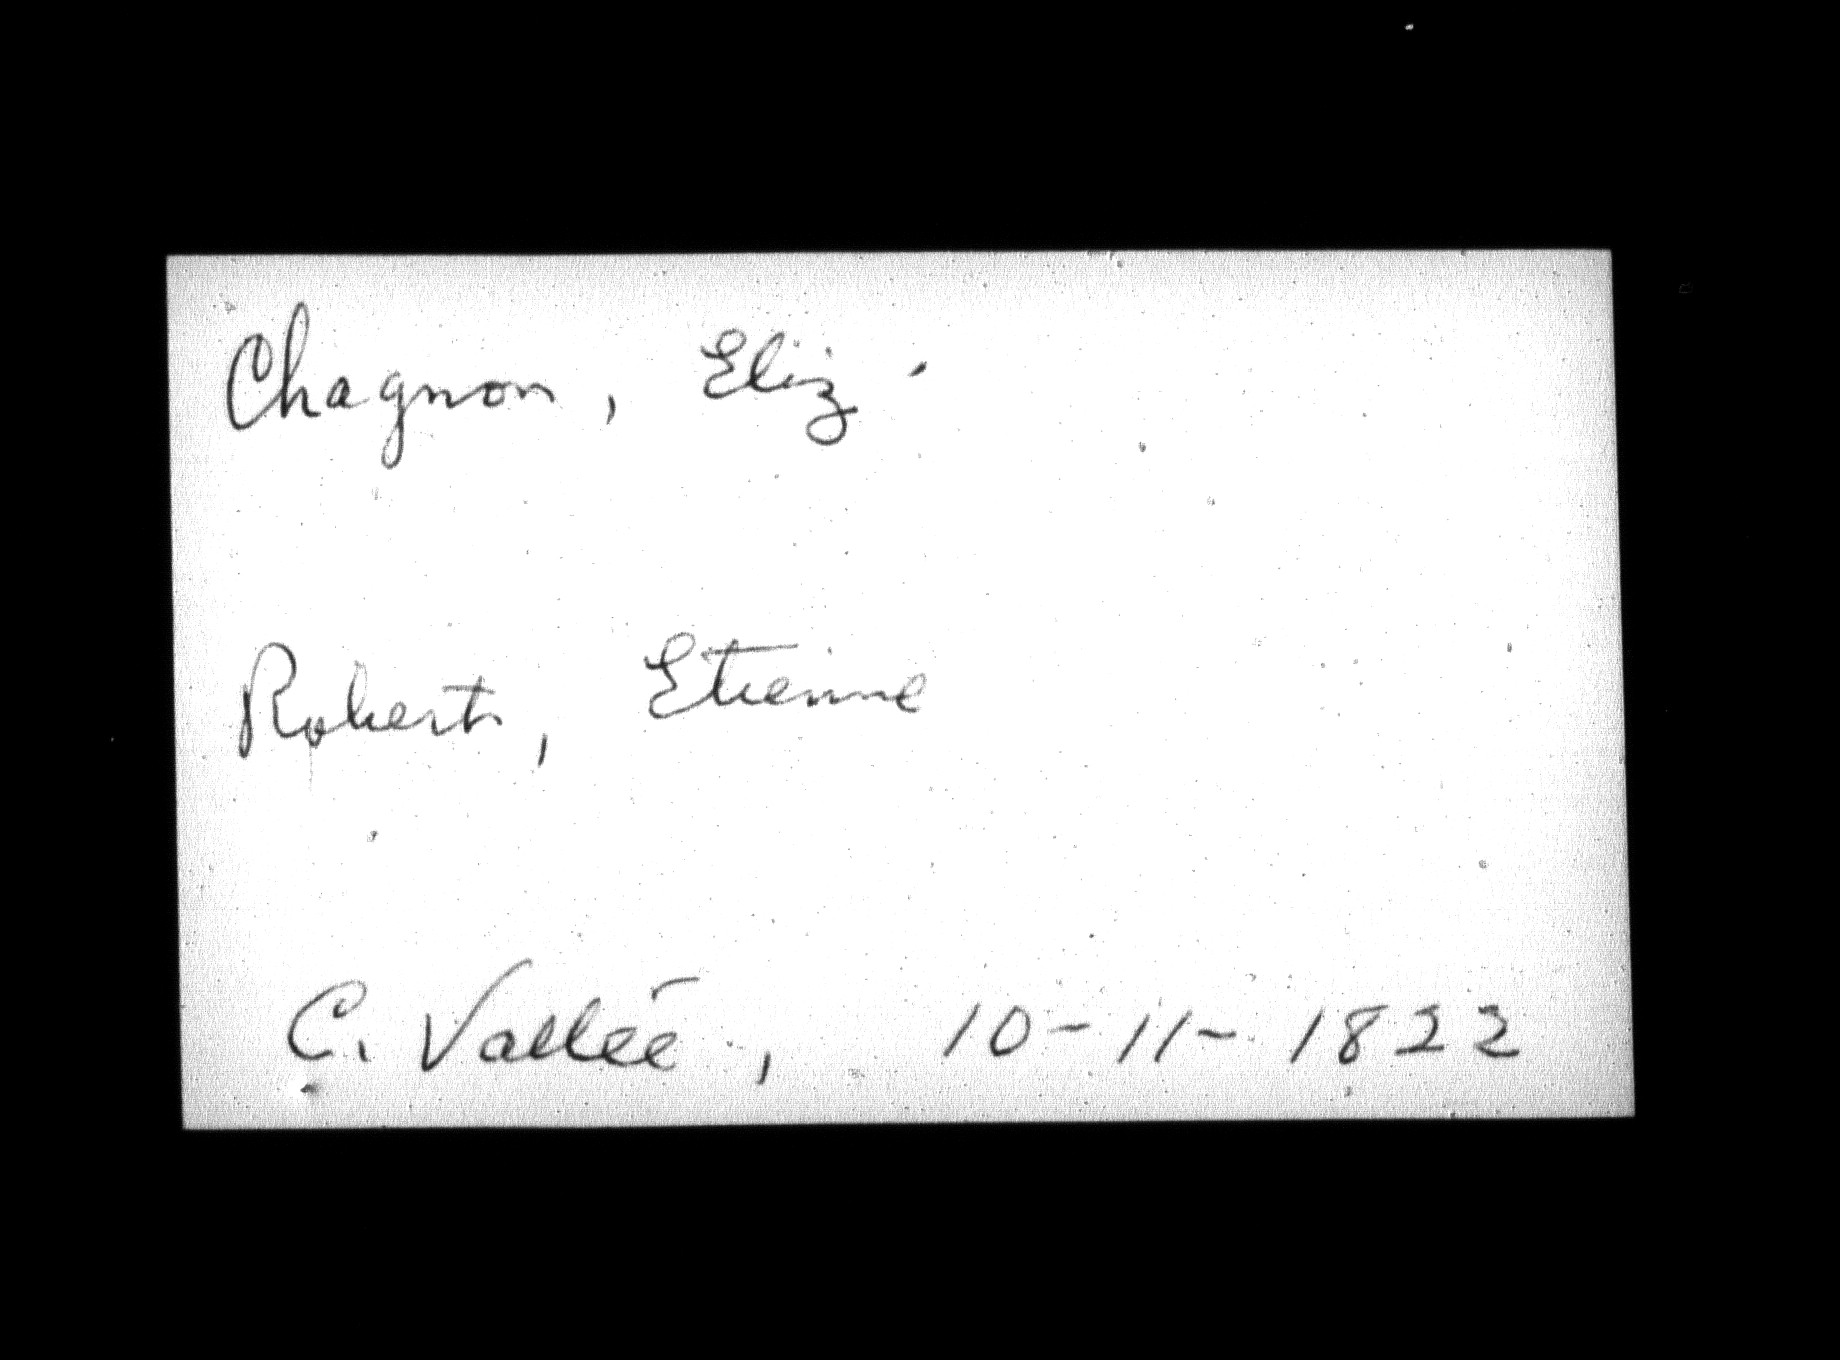 Chagnon, Eliz.
Robert, Etienne
C. Vallée, 10-11-1822